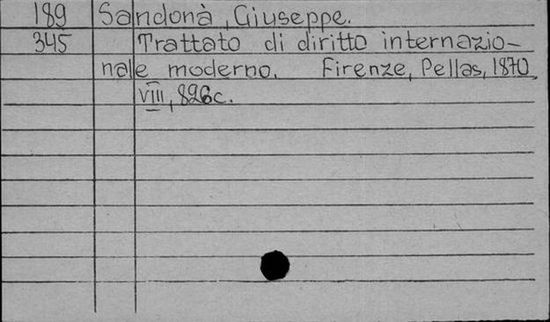 189 Sandonà, Giuseppe.
345 Trattato di diritto internazio-
nale moderno. Firenze, Pellas, 1870,
VIII, 826c.